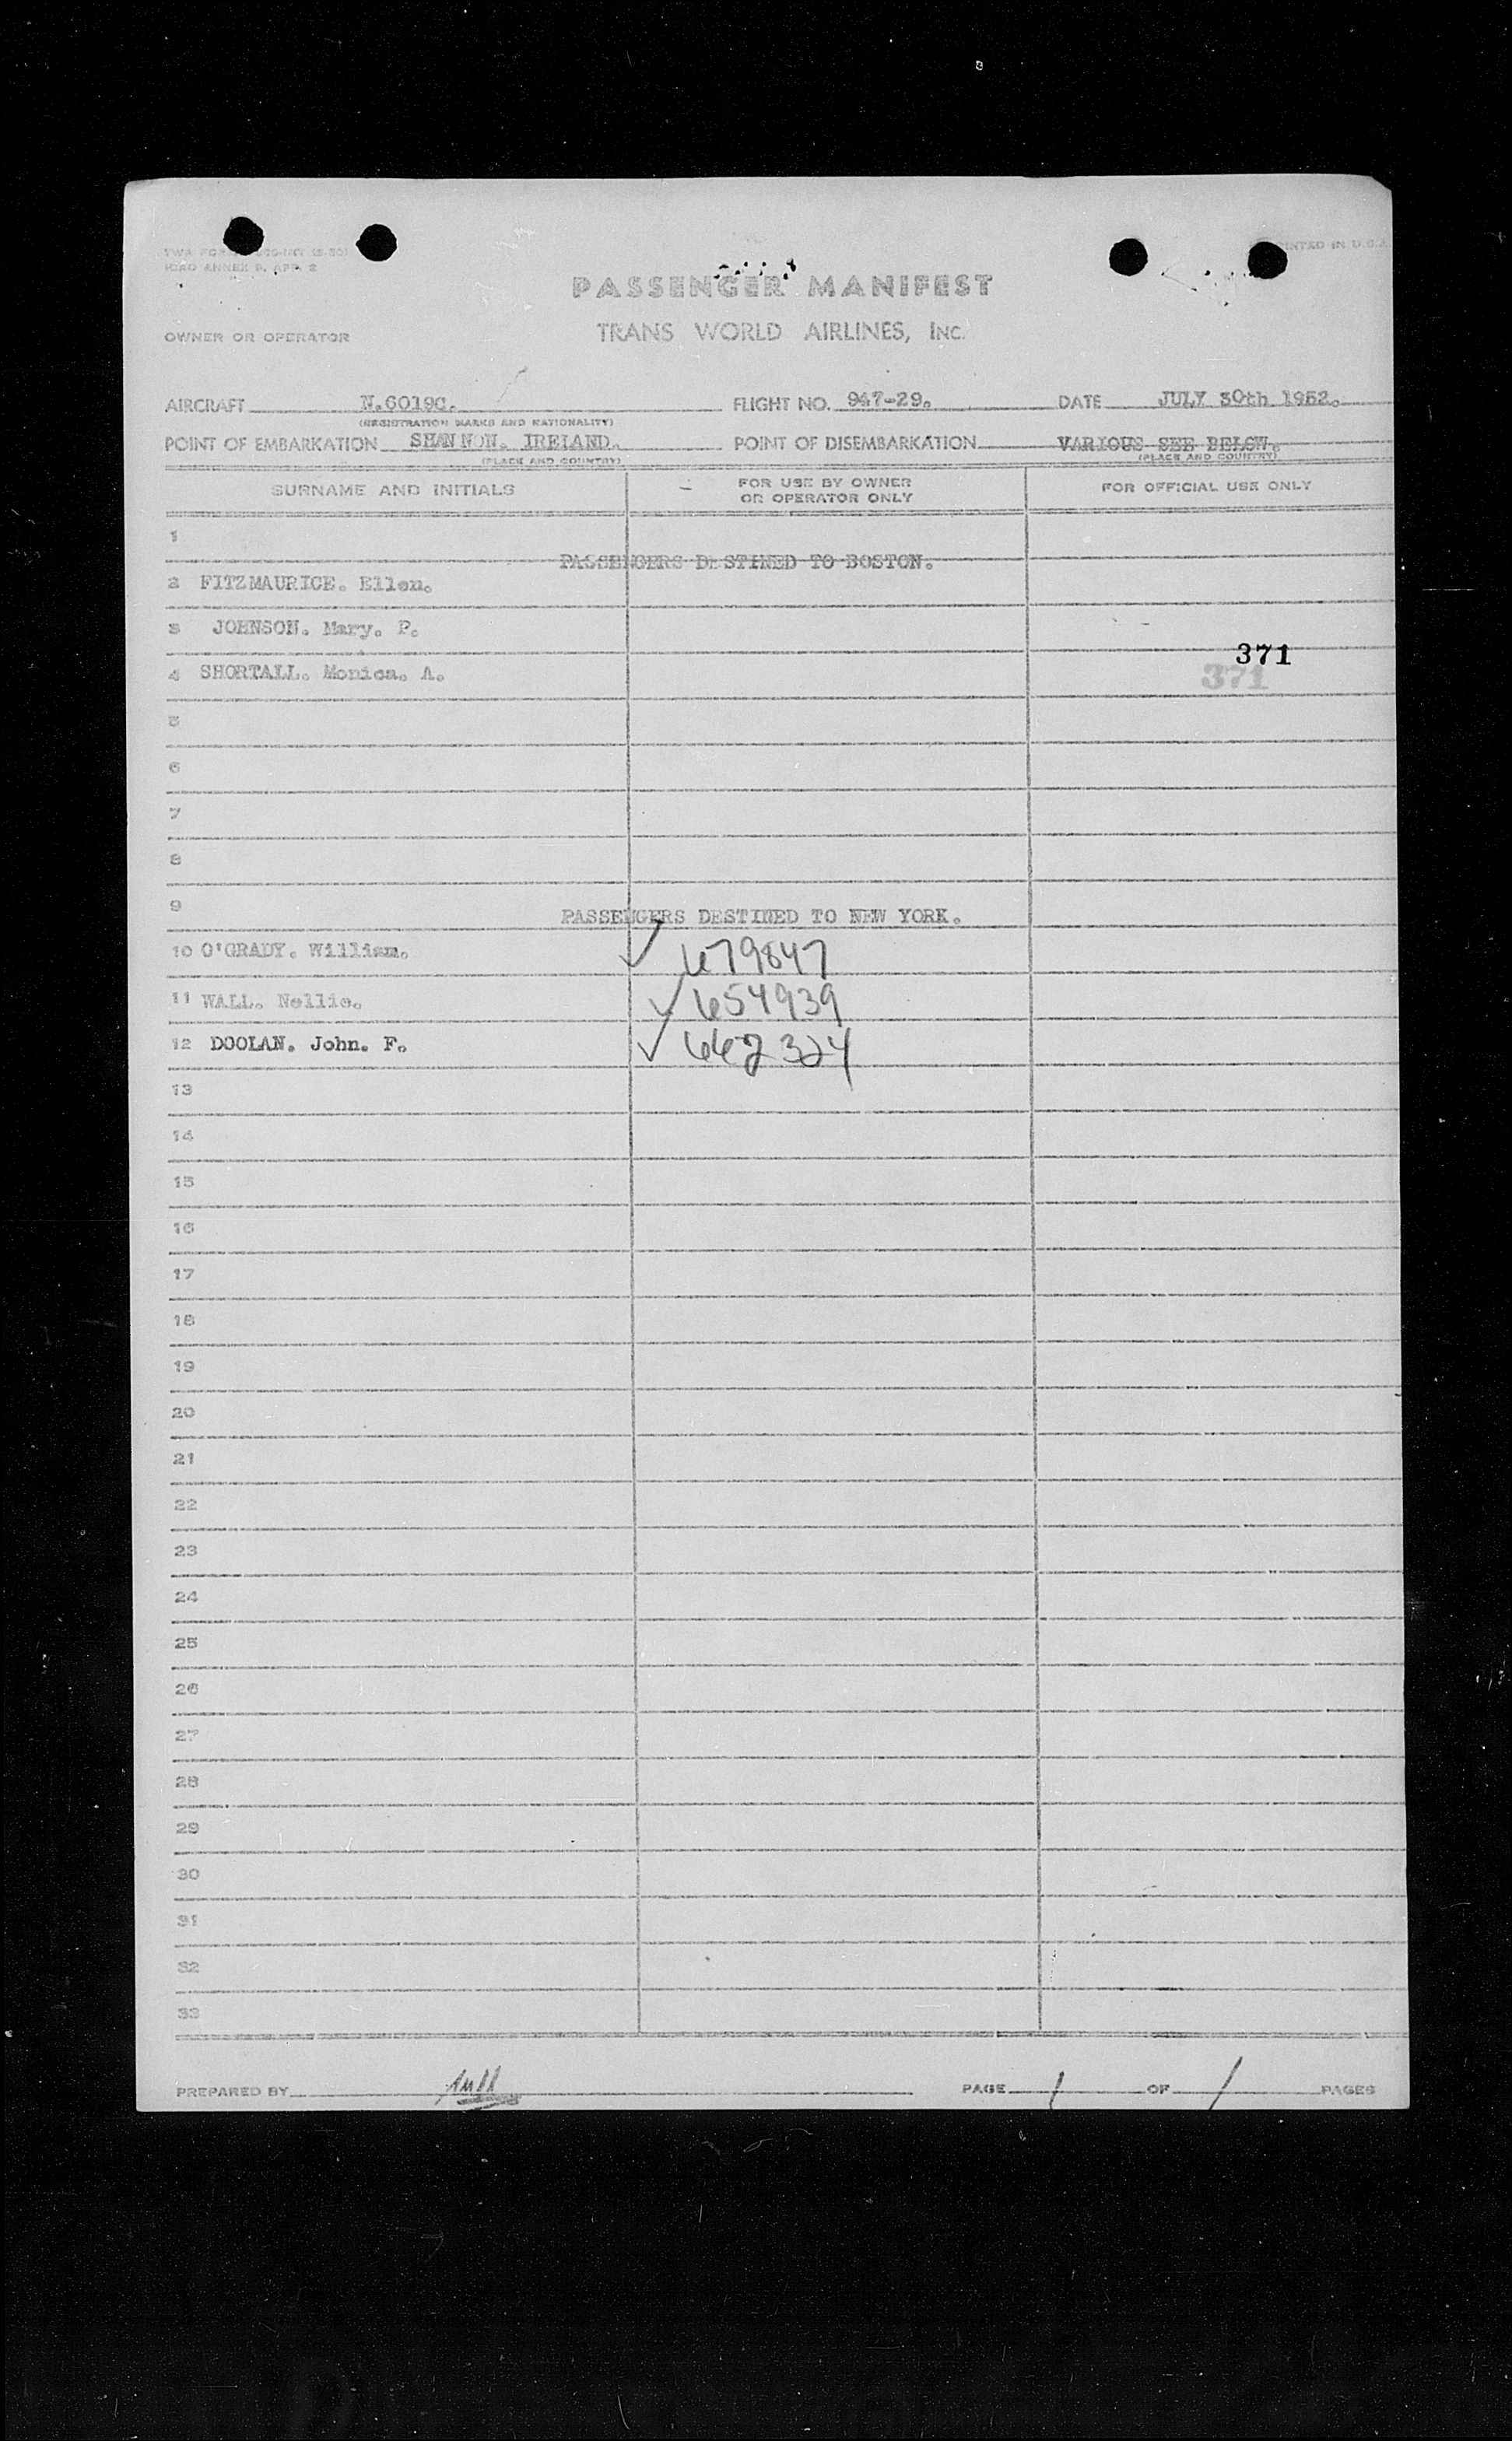 PRINTED IN U.S.A.
ICAO ANNEX 9, APP. 2
PASSENGER MANIFEST
OWNER OR OPERATOR
TRANS WORLD AIRLINES, INC.
AIRCRAFT N.6019C. FLIGHT NO. 947-29. DATE JULY 30th 1952.
(REGISTRATION MARKS AND NATIONALITY)
POINT OF EMBARKATION SHANNON. IRELAND. POINT OF DISEMBARKATION VARIOUS SEE BELOW.
(PLACE AND COUNTRY) (PLACE AND COUNTRY)
SURNAME AND INITIALS FOR USE BY OWNER OR OPERATOR ONLY FOR OFFICIAL USE ONLY
1
PASSENGERS DESTINED TO BOSTON.
2 FITZMAURICE. Ellen.
3 JOHNSON. Mary. P.
371
4 SHORTALL. Monica. A. 371
5
6
7
8
9 PASSENGERS DESTINED TO NEW YORK.
10 O'GRADY. William. ✓ 679847
11 WALL. Nellie. ✓ 654939
12 DOOLAN. John. F. ✓ 662324
13
14
15
16
17
18
19
20
21
22
23
24
25
26
27
28
29
30
31
32
33
PREPARED BY PAGE 1 OF 1 PAGES